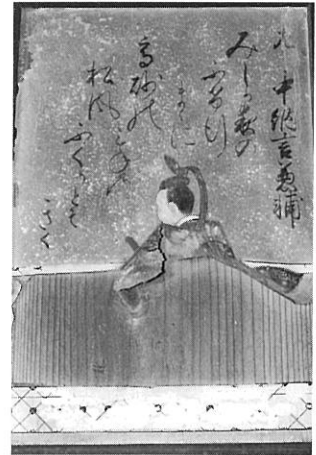 中納言兼輔
みしか夜の
ふけ行
まゝに
高砂の
松風
ふくかとそ
きく